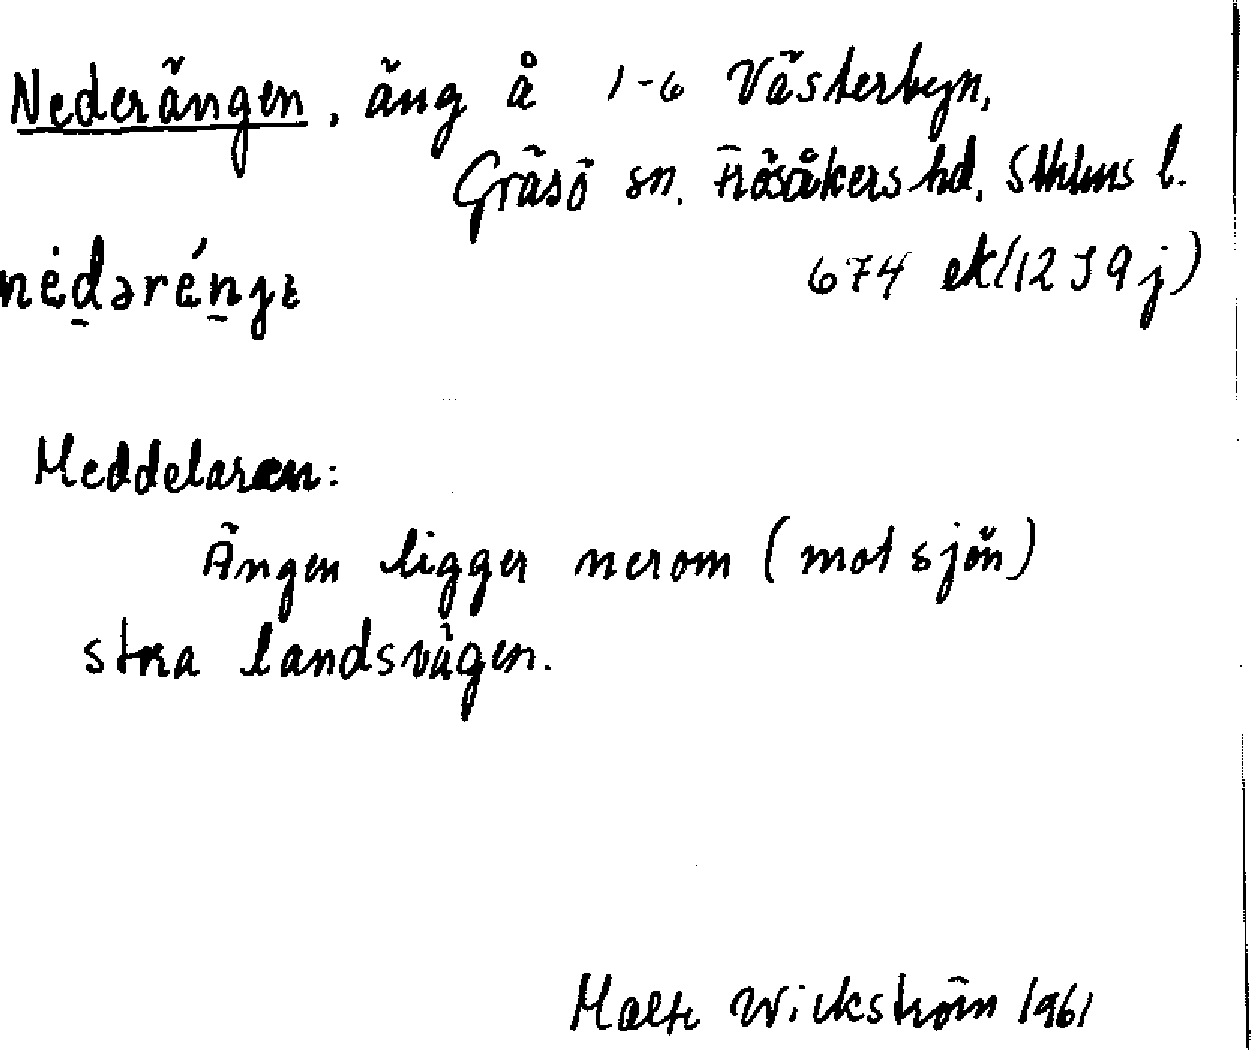 Nederängen, äng å 1-6 Västerbyn,
Gräsö sn. Frösåkers hd. Sthlms l.
674 ek (12 I 9 j)
nèdəréngɛ
Meddelaren:
Ängen ligger nerom (mot sjön)
stra landsvägen.
Malte Wickström 1961